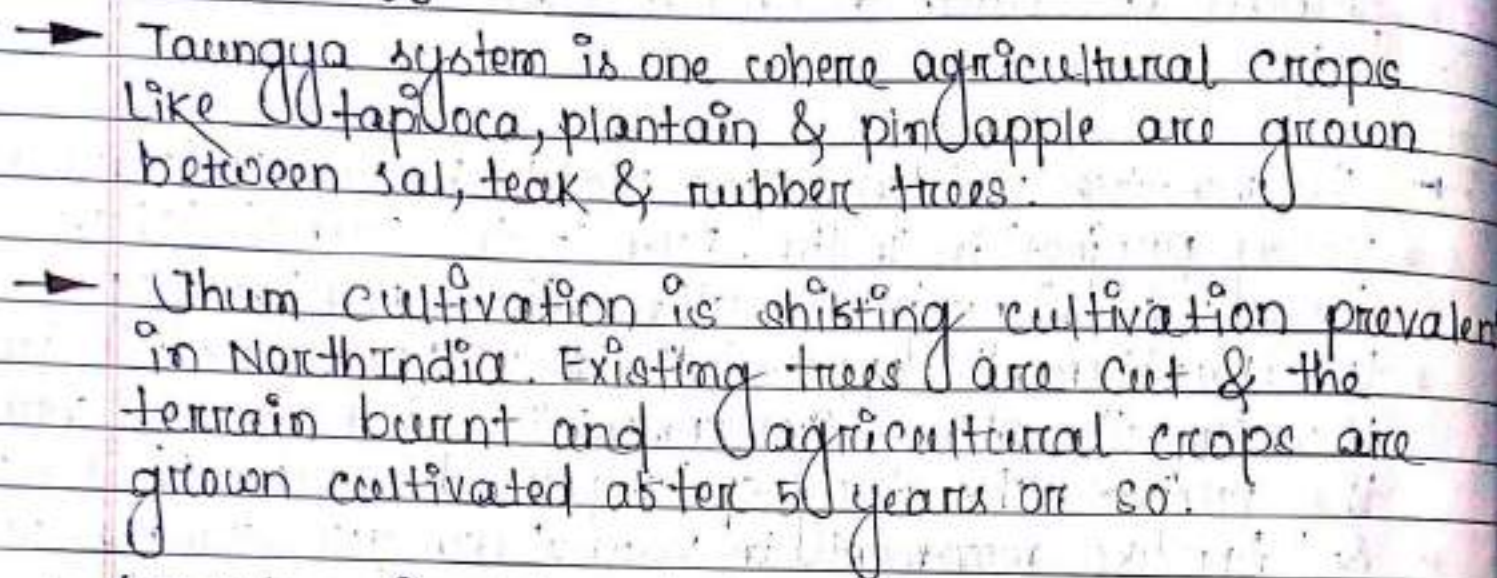 → Taungya system is one where agricultural crops
like tapioca, plantain & pineapple are grown
between sal, teak & rubber trees.
→ Jhum cultivation is shifting cultivation prevalen
in North India. Existing trees are cut & the
terrain burnt and agricultural crops are
grown cultivated after 5 years or so.